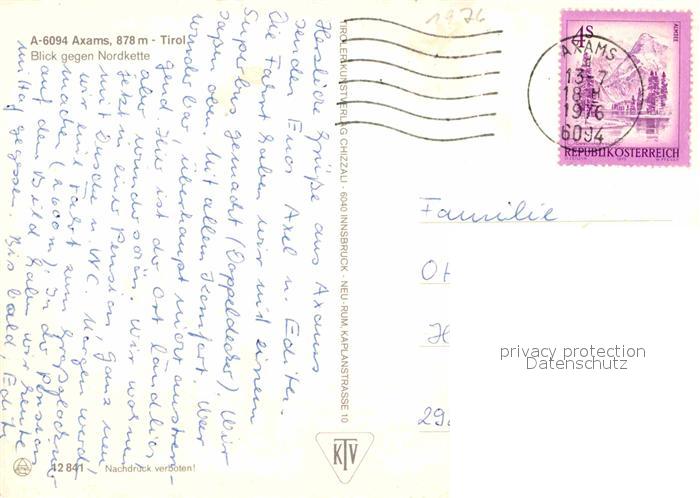 A-6094 Axams, 878 m - Tirol
Blick gegen Nordkette
Herzliche Grüße aus Axams
senden Euch Axel u. Edith.
Die Fahrt haben wir mit einem
Superbus gemacht (Doppeldecker). Wir
saßen oben. Mit allem Komfort. War
wunderbar, überhaupt nicht anstren-
gend. Hier ist der Ort ländlich
aber wunderschön. Wir wohnen
jetzt in einer Pension, ganz neu
mit Dusche u. WC. Morgen werden
wir mit Fahrt zum Großglockner
machen (2600 m). In der Pension
auf dem Bild haben wir heute
mittag gegessen. Bis bald, Edith
12 841 Nachdruck verboten!
TIROLER KUNSTVERLAG CHIZZALI · 6040 INNSBRUCK - NEU-RUM, KAPLANSTRASSE 10
KTV
1976
4 S
ALMSEE
REPUBLIK ÖSTERREICH
AXAMS
13-7
18-H
1976
6094
Familie
OH
29
privacy protection
Datenschutz